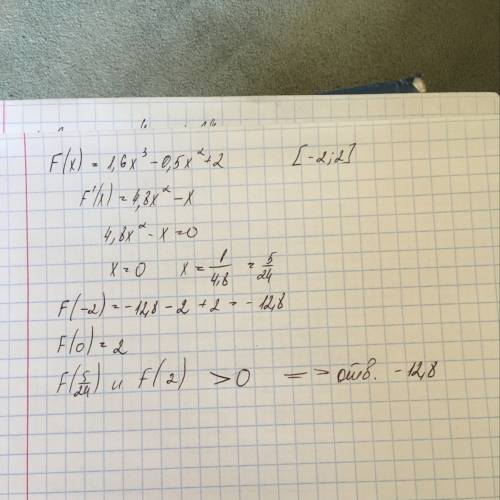 F(x) = 1,6x³ - 0,5x² + 2 [-2; 2]
F'(x) = 4,8x² - x
4,8x² - x = 0
x = 0 x = 1/4,8 = 5/24
F(-2) = -12,8 - 2 + 2 = -12,8
F(0) = 2
F(5/24) и F(2) > 0 => отв. -12,8